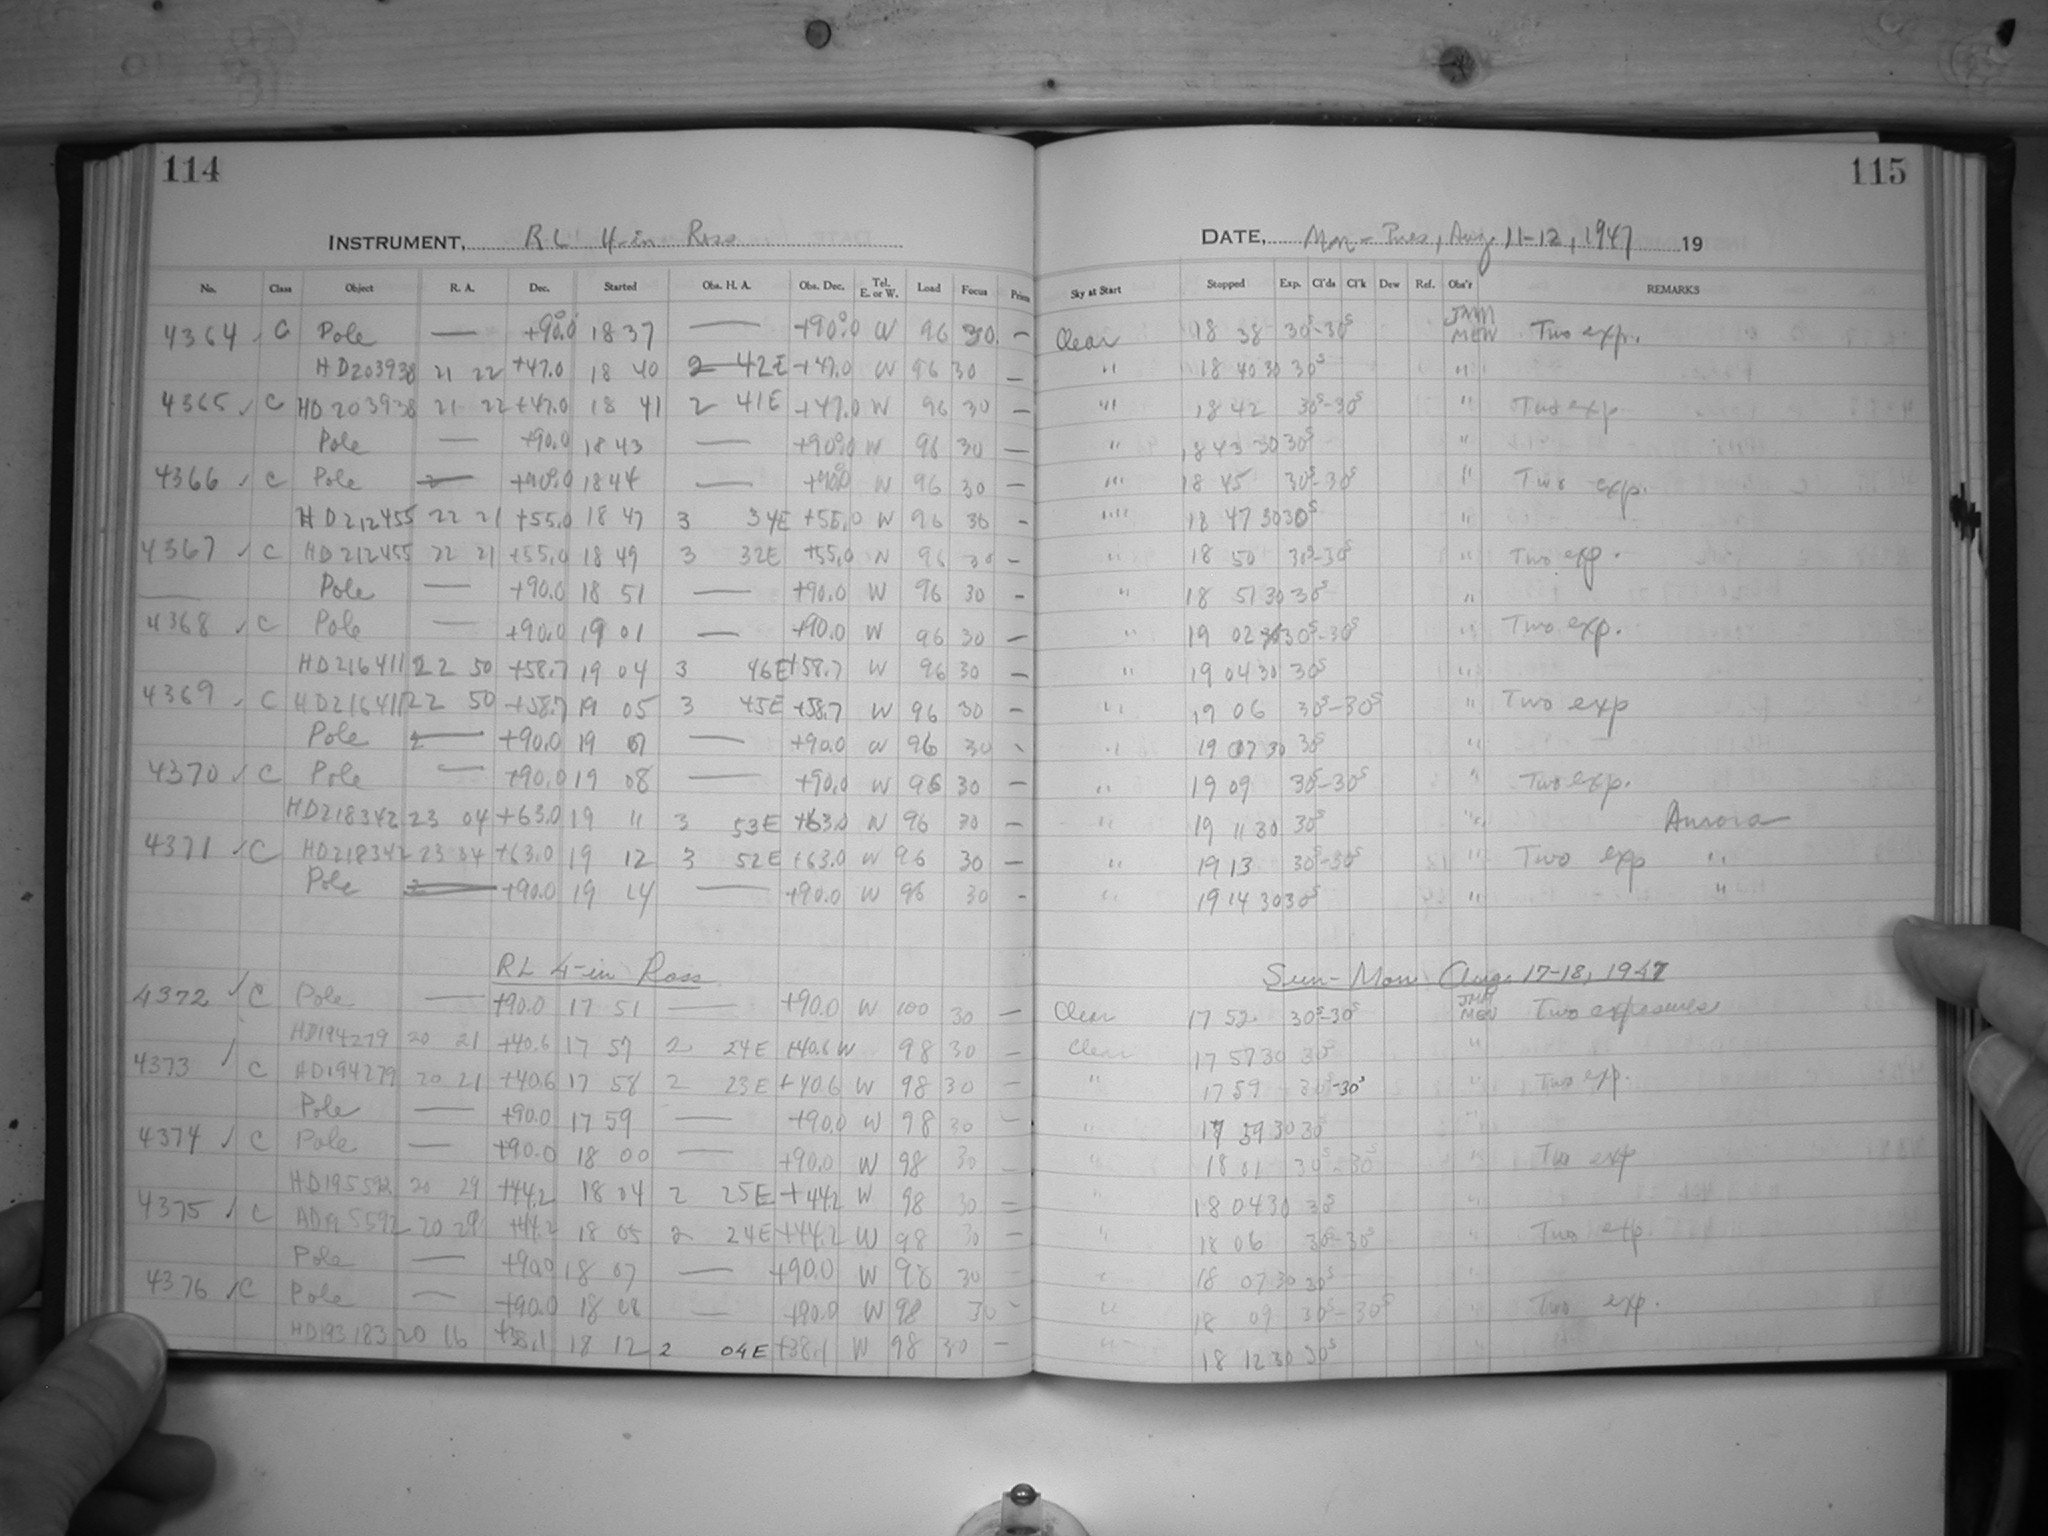 114
115
INSTRUMENT, RL 4-in Ross
DATE, Mon-Tues, Aug. 11-12, 1947 19
No. Class Object R. A. Dec. Started Obs. H. A. Obs. Dec. Tel. E. or W. Load Focus Prism Sky at Start Stopped Exp. Cl'ds Cl'k Dew Ref. Obs'r REMARKS
4364 ✓ C Pole — +90.0 18 37 — +90.0 W 96 30 — Clear 18 38 30s-30s MEW Two exp.
HD203938 21 22 +47.0 18 40 2 42E +47.0 W 96 30 — " 18 40 30 30s "
4365 ✓ C HD203938 21 22 +47.0 18 41 2 41E +47.0 W 96 30 — " 18 42 30s-30s " Two exp
Pole — +90.0 18 43 — +90.0 W 96 30 — " 18 43 30 30s "
4366 ✓ C Pole — +90.0 18 44 — +90.0 W 96 30 — " 18 45 30s-30s " Two exp.
HD212455 22 21 +55.0 18 47 3 34E +55.0 W 96 30 — " 18 47 30 30s "
4367 ✓ C HD212455 22 21 +55.0 18 49 3 32E +55.0 W 96 30 — " 18 50 30s-30s " Two exp.
Pole — +90.0 18 51 — +90.0 W 96 30 — " 18 51 30 30s "
4368 ✓ C Pole — +90.0 19 01 — +90.0 W 96 30 — " 19 02 30s-30s " Two exp.
HD216411 22 50 +58.7 19 04 3 46E +58.7 W 96 30 — " 19 04 30 30s "
4369 ✓ C HD216411 22 50 +58.7 19 05 3 45E +58.7 W 96 30 — " 19 06 30s-30s " Two exp
Pole — +90.0 19 07 — +90.0 W 96 30 — " 19 07 30 30s "
4370 ✓ C Pole — +90.0 19 08 — +90.0 W 96 30 — " 19 09 30s-30s " Two exp.
HD218342 23 04 +63.0 19 11 3 53E +63.0 W 96 30 — " 19 11 30 30s " Aurora
4371 ✓ C HD218342 23 04 +63.0 19 12 3 52E +63.0 W 96 30 — " 19 13 30s-30s " Two exp "
Pole — +90.0 19 14 — +90.0 W 96 30 — " 19 14 30 30s " "
RL 4-in Ross
Sun-Mon Aug. 17-18, 1947
4372 ✓ C Pole — +90.0 17 51 — +90.0 W 100 30 — Clear 17 52 30s-30s MEW Two exposures
HD194279 20 21 +40.6 17 57 2 24E +40.6 W 98 30 — Clear 17 57 30 30s "
4373 ✓ C HD194279 20 21 +40.6 17 58 2 23E +40.6 W 98 30 — " 17 59 30s-30s " Two exp.
Pole — +90.0 17 59 — +90.0 W 98 30 — " 17 59 30 30s "
4374 ✓ C Pole — +90.0 18 00 — +90.0 W 98 30 — " 18 01 30s-30s " Two exp
HD195592 20 29 +44.2 18 04 2 25E +44.2 W 98 30 — " 18 04 30 30s "
4375 ✓ C HD195592 20 29 +44.2 18 05 2 24E +44.2 W 98 30 — " 18 06 30s-30s " Two exp.
Pole — +90.0 18 07 — +90.0 W 98 30 " 18 07 30 30s "
4376 ✓ C Pole — +90.0 18 08 — +90.0 W 98 30 — " 18 09 30s-30s " Two exp.
HD193183 20 16 +38.1 18 12 2 04E +38.1 W 98 30 — " 18 12 30 30s